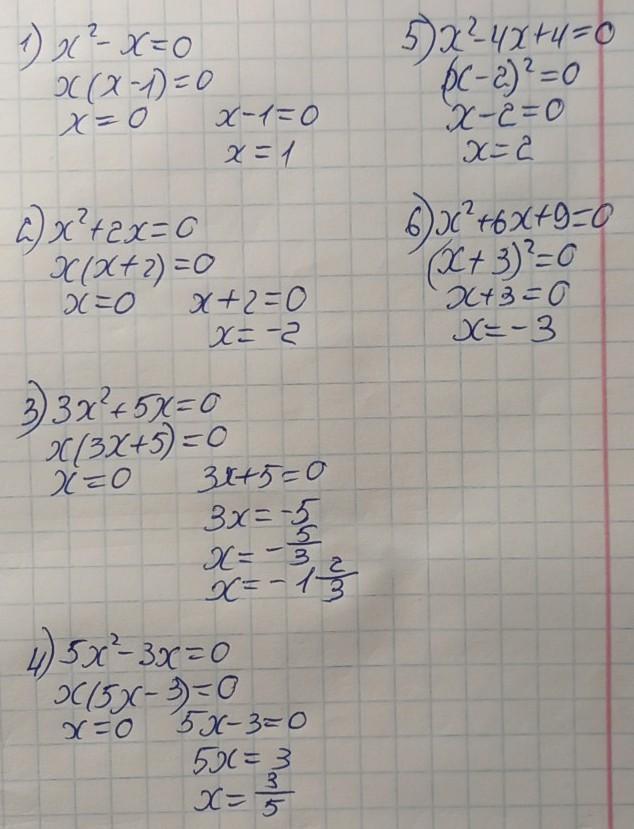 1) x² - x = 0
x(x-1) = 0
x = 0 x-1 = 0
x = 1
2) x² + 2x = 0
x(x+2) = 0
x = 0 x+2 = 0
x = -2
3) 3x² + 5x = 0
x(3x+5) = 0
x = 0 3x+5 = 0
3x = -5
x = -5/3
x = -1 2/3
4) 5x² - 3x = 0
x(5x-3) = 0
x = 0 5x-3 = 0
5x = 3
x = 3/5
5) x² - 4x + 4 = 0
(x-2)² = 0
x-2 = 0
x = 2
6) x² + 6x + 9 = 0
(x+3)² = 0
x+3 = 0
x = -3